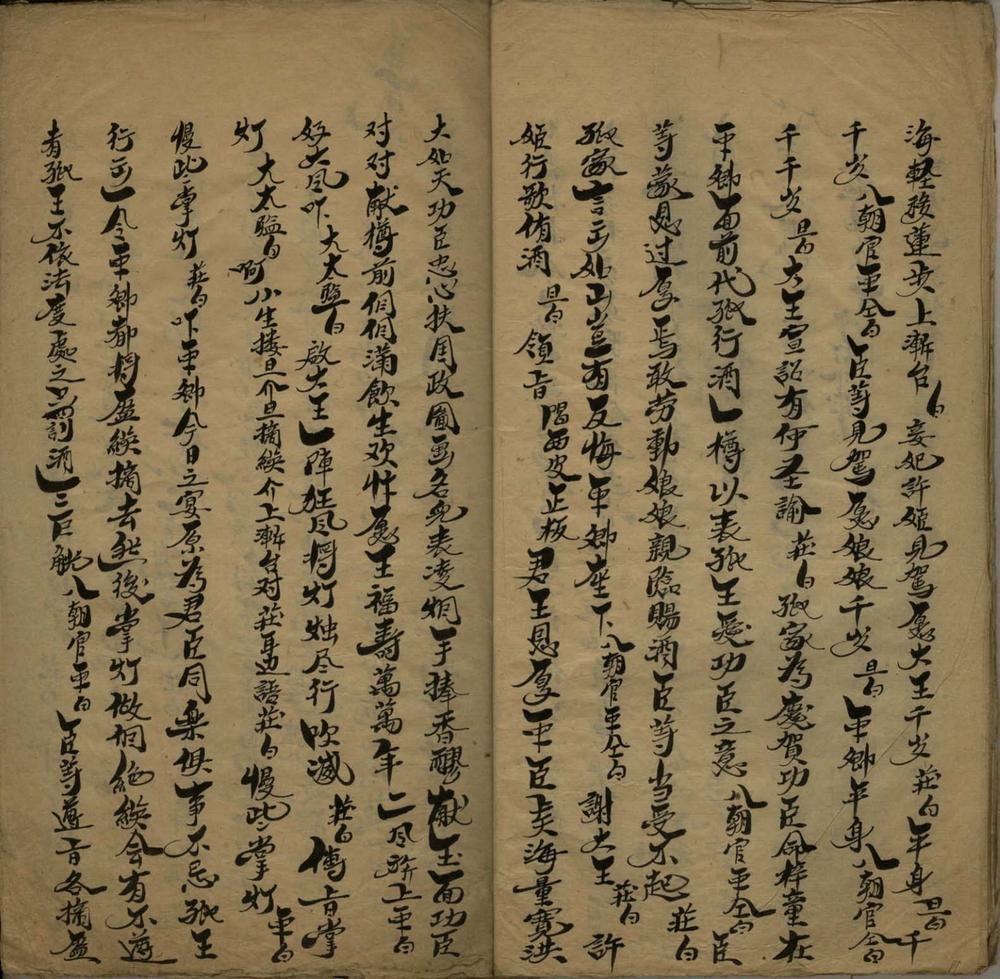 海輕移蓮步上漸台白妾妃許姬見駕愿大王千岁莊白平身旦白千
千岁八朝官平仝白臣等見駕愿娘娘千岁旦白平卿平身八朝官仝白
千千岁旦白大王宣詔有何圣諭莊白孤家為慶賀功臣命梓童在
平卿面前代孤行酒一樽以表孤王爱功臣之意八朝官平仝白臣
等蒙恩过厚焉敢劳動娘娘親臨賜酒臣等当受不起莊白
孤家言出如山岂有反悔平卿座下八朝官平仝白謝大王莊白許
姬行歌侑酒旦白領旨唱西皮正板君王恩厚平臣夫海量寬洪
大如天功臣忠心扶国政圖画名兒表凌烟手捧香醪献玉面功臣
对对献樽前個個滿飲生欢忭愿王福寿萬萬年二风旂上平白
好大风吓大太監白啟大王一陣狂风將灯烛尽行吹滅莊白傳旨掌
灯大太監白啊小生搂旦介旦摘纓介上漸台对莊耳边語莊白慢此掌灯平白
慢此掌灯莊白吓平卿今日之宴原為君臣同樂俱事不忌孤王
行出一令平卿都將盔纓摘去然後掌灯做個絶纓会有不遵
者孤王不依法度處之罰酒三巨觥八朝官平白臣等遵旨各摘盔